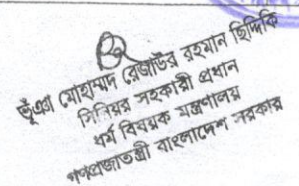 ভূঁঞা মোহাম্মদ রেজাউর রহমান ছিদ্দিকি
সিনিয়র সহকারী প্রধান
ধর্ম বিষয়ক মন্ত্রণালয়
গণপ্রজাতন্ত্রী বাংলাদেশ সরকার